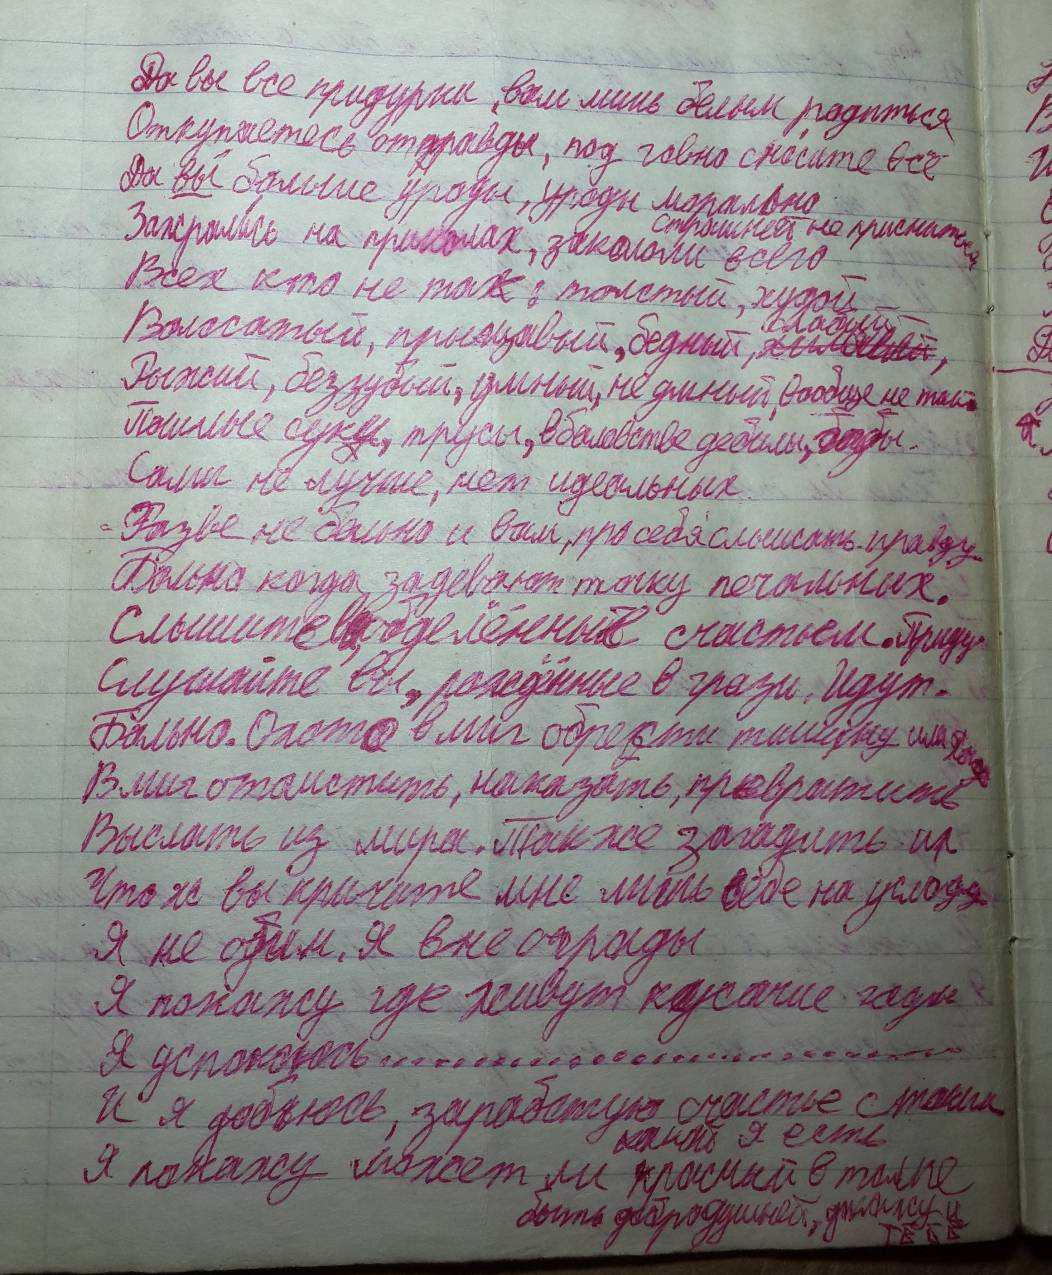 Да вы все придурки, вам лишь белым родиться
Откупаетесь от правды, под говно сносите всё
Да вы больные уроды, уроды морально
страшней не приснится
Зажрались на приколах, закололи всего
Всех кто не так: толстый, худой
слабый
Волосатый, прыщавый, бедный,
Рыжий, беззубый, умный, не умный, вообще не такой
Пошлые суки, трусы, в баловстве дебилы,
Сами не лучше, нет идеальных
Разве не больно и вам, про себя слышать правду
Больно когда задевают точку печальных.
Слышите вы, обделённые счастьем. Приду
Слушайте вы, рождённые в грязи. Идут.
Больно. Охота в миг обрести тишину или
В миг отомстить, наказать, превратить
Выслать из мира. Также загадить их
Что ж вы кричите мне лишь себе на усладу
Я не один. Я вне ограды
Я покажу где живут кусачие гады
Я успокоюсь....................
И я добьюсь, заработую счастье с таким
какой я есть
Я покажу может ли красный в толпе
быть добродушней, докажу и